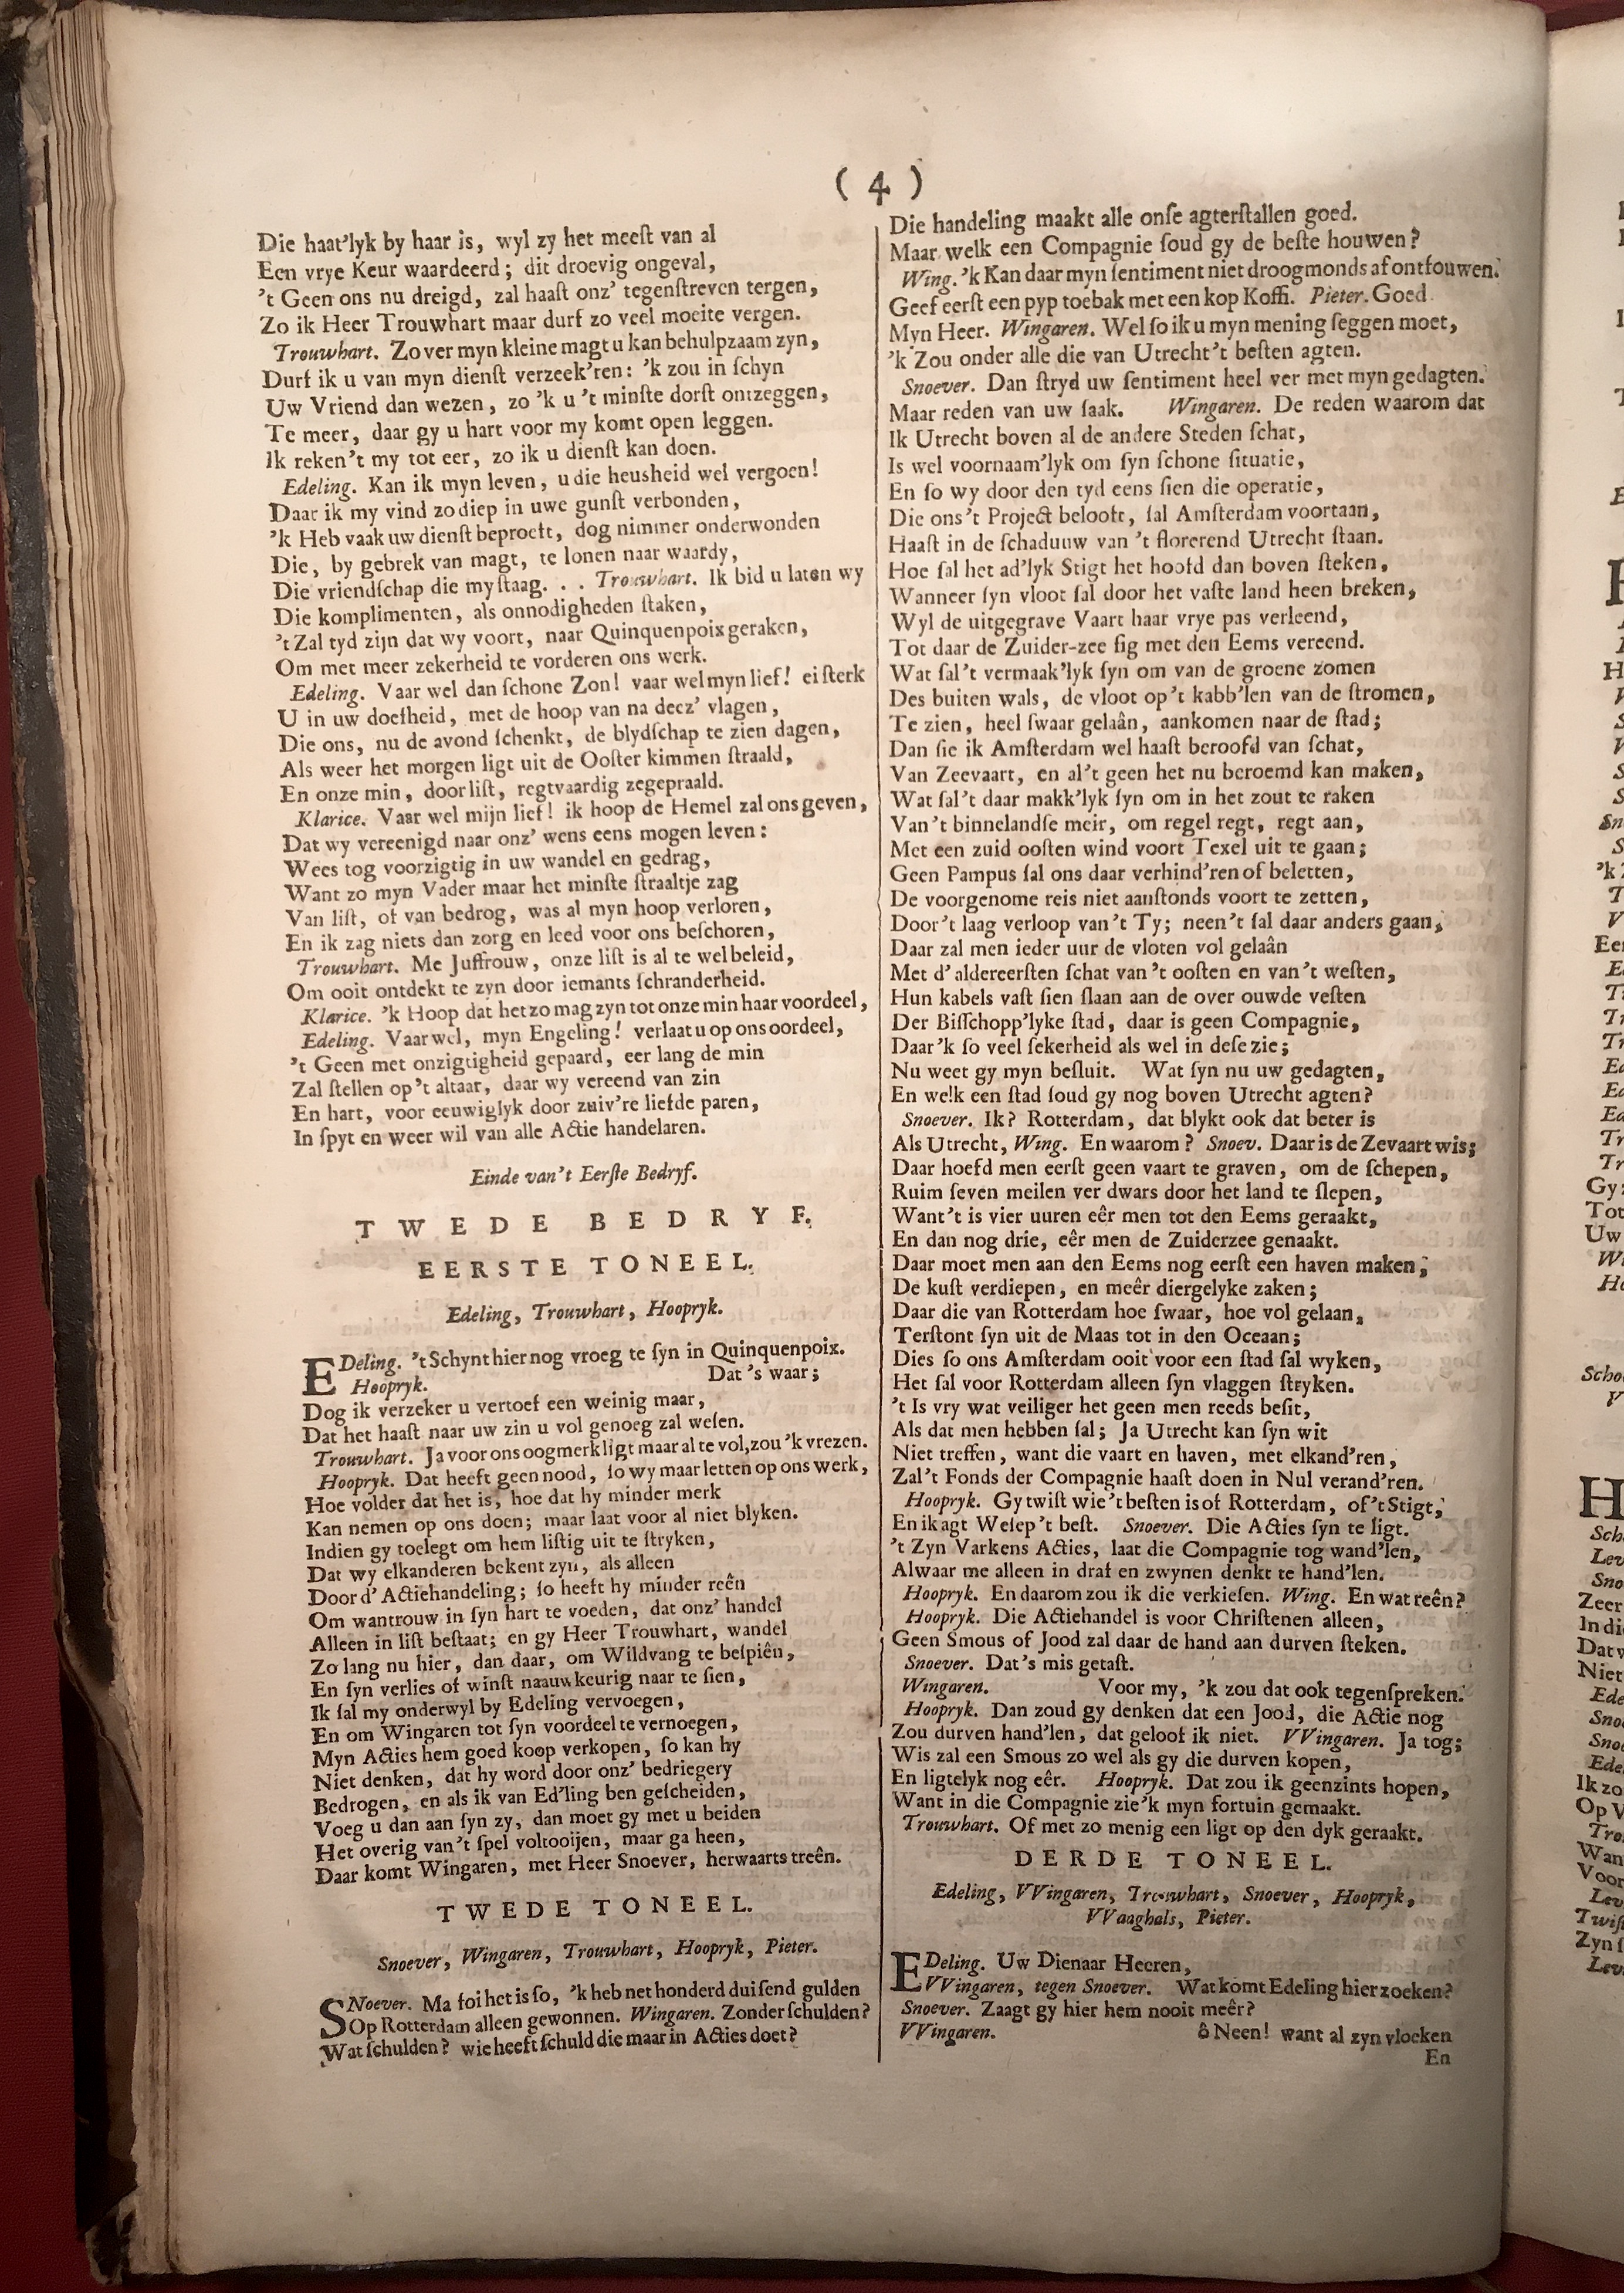 ( 4 )
Die haat'lyk by haar is, wyl zy het meeſt van al
Een vrye Keur waardeerd; dit droevig ongeval,
't Geen ons nu dreigd, zal haaſt onz' tegenſtreven tergen,
Zo ik Heer Trouwhart maar durf zo veel moeite vergen.
Trouwhart. Zo ver myn kleine magt u kan behulpzaam zyn,
Durf ik u van myn dienſt verzeek'ren: 'k zou in ſchyn
Uw Vriend dan wezen, zo 'k u 't minſte dorſt ontzeggen,
Te meer, daar gy u hart voor my komt open leggen.
Ik reken't my tot eer, zo ik u dienſt kan doen.
Edeling. Kan ik myn leven, u die heusheid wel vergoen!
Daar ik my vind zo diep in uwe gunſt verbonden,
'k Heb vaak uw dienſt beproeft, dog nimmer onderwonden
Die, by gebrek van magt, te lonen naar waardy,
Die vriendſchap die my ſtaag. . . Trouwhart. Ik bid u laten wy
Die komplimenten, als onnodigheden ſtaken,
't Zal tyd zijn dat wy voort, naar Quinquenpoix geraken,
Om met meer zekerheid te vorderen ons werk.
Edeling. Vaar wel dan ſchone Zon! vaar wel myn lief! ei ſterk
U in uw doefheid, met de hoop van na deez' vlagen,
Die ons, nu de avond ſchenkt, de blydſchap te zien dagen,
Als weer het morgen ligt uit de Ooſter kimmen ſtraald,
En onze min, door liſt, regtvaardig zegepraald.
Klarice. Vaar wel mijn lief! ik hoop de Hemel zal ons geven,
Dat wy vereenigd naar onz' wens eens mogen leven:
Wees tog voorzigtig in uw wandel en gedrag,
Want zo myn Vader maar het minſte ſtraaltje zag
Van liſt, of van bedrog, was al myn hoop verloren,
En ik zag niets dan zorg en leed voor ons beſchoren,
Trouwhart. Me Juffrouw, onze liſt is al te wel beleid,
Om ooit ontdekt te zyn door iemants ſchranderheid.
Klarice. 'k Hoop dat het zo mag zyn tot onze min haar voordeel,
Edeling. Vaar wel, myn Engeling! verlaat u op ons oordeel,
't Geen met onzigtigheid gepaard, eer lang de min
Zal ſtellen op 't altaar, daar wy vereend van zin
En hart, voor eeuwiglyk door zuiv're liefde paren,
In ſpyt en weer wil van alle Actie handelaren.
Einde van't Eerſte Bedryf.
TWEDE BEDRYF.
EERSTE TONEEL.
Edeling, Trouwhart, Hoopryk.
EDeling. 't Schynt hier nog vroeg te ſyn in Quinquenpoix.
Hoopryk. Dat 's waar;
Dog ik verzeker u vertoef een weinig maar,
Dat het haaſt naar uw zin u vol genoeg zal weſen.
Trouwhart. Ja voor ons oogmerk ligt maar al te vol, zou 'k vrezen.
Hoopryk. Dat heeft geen nood, ſo wy maar letten op ons werk,
Hoe volder dat het is, hoe dat hy minder merk
Kan nemen op ons doen; maar laat voor al niet blyken.
Indien gy toelegt om hem liſtig uit te ſtryken,
Dat wy elkanderen bekent zyn, als alleen
Door d' Actiehandeling; ſo heeft hy minder reên
Om wantrouw in ſyn hart te voeden, dat onz' handel
Alleen in liſt beſtaat; en gy Heer Trouwhart, wandel
Zo lang nu hier, dan daar, om Wildvang te beſpiên,
En ſyn verlies of winſt naauwkeurig naar te ſien,
Ik ſal my onderwyl by Edeling vervoegen,
En om Wingaren tot ſyn voordeel te vernoegen,
Myn Acties hem goed koop verkopen, ſo kan hy
Niet denken, dat hy word door onz' bedriegery
Bedrogen, en als ik van Ed'ling ben geſcheiden,
Voeg u dan aan ſyn zy, dan moet gy met u beiden
Het overig van't ſpel voltooijen, maar ga heen,
Daar komt Wingaren, met Heer Snoever, herwaarts treên.
TWEDE TONEEL.
Snoever, Wingaren, Trouwhart, Hoopryk, Pieter.
SNoever. Ma foi het is ſo, 'k heb net honderd duiſend gulden
Op Rotterdam alleen gewonnen. Wingaren. Zonder ſchulden?
Wat ſchulden? wie heeft ſchuld die maar in Acties doet?
Die handeling maakt alle onſe agterſtallen goed.
Maar welk een Compagnie ſoud gy de beſte houwen?
Wing. 'k Kan daar myn ſentiment niet droogmonds af ontfouwen.
Geef eerſt een pyp toebak met een kop Koffi. Pieter. Goed
Myn Heer. Wingaren. Wel ſo ik u myn mening ſeggen moet,
'k Zou onder alle die van Utrecht 't beſten agten.
Snoever. Dan ſtryd uw ſentiment heel ver met myn gedagten.
Maar reden van uw ſaak. Wingaren. De reden waarom dat
Ik Utrecht boven al de andere Steden ſchat,
Is wel voornaam'lyk om ſyn ſchone ſituatie,
En ſo wy door den tyd eens ſien die operatie,
Die ons 't Project belooft, ſal Amſterdam voortaan,
Haaſt in de ſchaduuw van 't florerend Utrecht ſtaan.
Hoe ſal het ad'lyk Stigt het hoofd dan boven ſteken,
Wanneer ſyn vloot ſal door het vaſte land heen breken,
Wyl de uitgegrave Vaart haar vrye pas verleend,
Tot daar de Zuider-zee ſig met den Eems vereend.
Wat ſal't vermaak'lyk ſyn om van de groene zomen
Des buiten wals, de vloot op't kabb'len van de ſtromen,
Te zien, heel ſwaar gelaân, aankomen naar de ſtad;
Dan ſie ik Amſterdam wel haaſt beroofd van ſchat,
Van Zeevaart, en al't geen het nu beroemd kan maken,
Wat ſal't daar makk'lyk ſyn om in het zout te raken
Van't binnelandſe meir, om regel regt, regt aan,
Met een zuid ooſten wind voort Texel uit te gaan;
Geen Pampus ſal ons daar verhind'ren of beletten,
De voorgenome reis niet aanſtonds voort te zetten,
Door't laag verloop van't Ty; neen't ſal daar anders gaan,
Daar zal men ieder uur de vloten vol gelaân
Met d' aldereerſten ſchat van 't ooſten en van't weſten,
Hun kabels vaſt ſien ſlaan aan de over ouwde veſten
Der Biſſchopp'lyke ſtad, daar is geen Compagnie,
Daar'k ſo veel ſekerheid als wel in deſe zie;
Nu weet gy myn beſluit. Wat ſyn nu uw gedagten,
En welk een ſtad ſoud gy nog boven Utrecht agten?
Snoever. Ik? Rotterdam, dat blykt ook dat beter is
Als Utrecht, Wing. En waarom? Snoev. Daar is de Zevaart wis;
Daar hoefd men eerſt geen vaart te graven, om de ſchepen,
Ruim ſeven meilen ver dwars door het land te ſlepen,
Want't is vier uuren eêr men tot den Eems geraakt,
En dan nog drie, eêr men de Zuiderzee genaakt.
Daar moet men aan den Eems nog eerſt een haven maken,
De kuſt verdiepen, en meêr diergelyke zaken;
Daar die van Rotterdam hoe ſwaar, hoe vol gelaan,
Terſtont ſyn uit de Maas tot in den Oceaan;
Dies ſo ons Amſterdam ooit voor een ſtad ſal wyken,
Het ſal voor Rotterdam alleen ſyn vlaggen ſtryken.
't Is vry wat veiliger het geen men reeds beſit,
Als dat men hebben ſal; Ja Utrecht kan ſyn wit
Niet treffen, want die vaart en haven, met elkand'ren,
Zal't Fonds der Compagnie haaſt doen in Nul verand'ren.
Hoopryk. Gy twiſt wie 't beſten is of Rotterdam, of 't Stigt,
En ik agt Weſep 't beſt. Snoever. Die Acties ſyn te ligt.
't Zyn Varkens Acties, laat die Compagnie tog wand'len,
Alwaar me alleen in draf en zwynen denkt te hand'len.
Hoopryk. En daarom zou ik die verkieſen. Wing. En wat reên?
Hoopryk. Die Actiehandel is voor Chriſtenen alleen,
Geen Smous of Jood zal daar de hand aan durven ſteken.
Snoever. Dat's mis getaſt.
Wingaren. Voor my, 'k zou dat ook tegenſpreken.
Hoopryk. Dan zoud gy denken dat een Jood, die Actie nog
Zou durven hand'len, dat geloof ik niet. VVingaren. Ja tog;
Wis zal een Smous zo wel als gy die durven kopen,
En ligtelyk nog eêr. Hoopryk. Dat zou ik geenzints hopen,
Want in die Compagnie zie'k myn fortuin gemaakt.
Trouwhart. Of met zo menig een ligt op den dyk geraakt.
DERDE TONEEL.
Edeling, VVingaren, Trouwhart, Snoever, Hoopryk,
VVaaghals, Pieter.
EDeling. Uw Dienaar Heeren,
VVingaren, tegen Snoever. Wat komt Edeling hier zoeken?
Snoever. Zaagt gy hier hem nooit meêr?
VVingaren. ô Neen! want al zyn vloeken
En